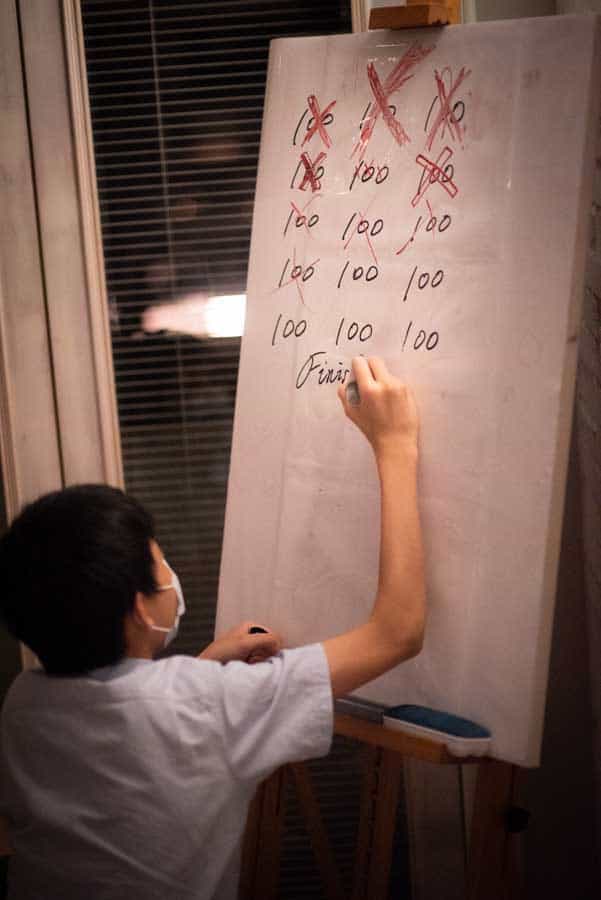 100 100 100
100 100 100
100 100 100
100 100 100
100 100 100
Finis